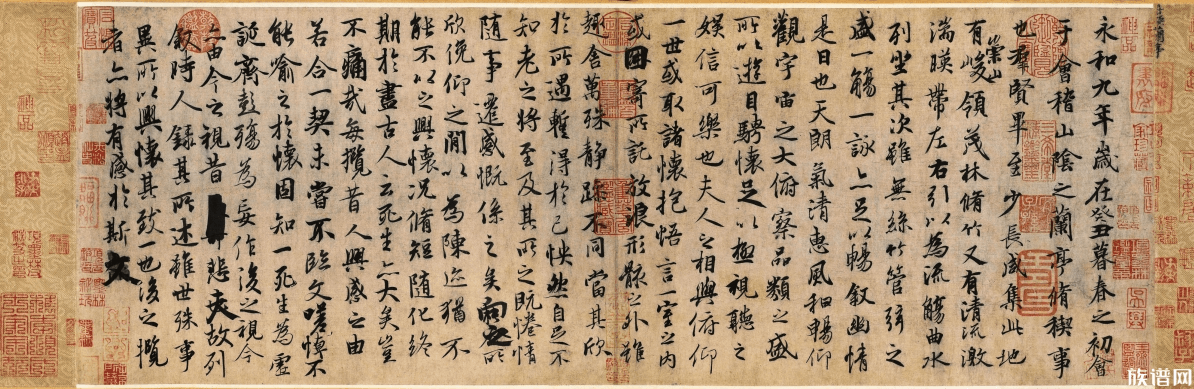 永和九年歲在癸丑暮春之初會
于會稽山陰之蘭亭脩稧事
也羣賢畢至少長咸集此地
有崇山峻領茂林脩竹又有清流激
湍暎帶左右引以為流觴曲水
列坐其次雖無絲竹管弦之
盛一觴一詠亦足以暢敘幽情
是日也天朗氣清惠風和暢仰
觀宇宙之大俯察品類之盛
所以遊目騁懷足以極視聽之
娛信可樂也夫人之相與俯仰
一世或取諸懷抱悟言一室之內
或因寄所託放浪形骸之外雖
趣舍萬殊靜躁不同當其欣
於所遇蹔得於己怏然自足不
知老之將至及其所之既惓情
隨事遷感慨係之矣向之所
欣俛仰之閒以為陳迹猶不
能不以之興懷況脩短隨化終
期於盡古人云死生亦大矣豈
不痛哉每攬昔人興感之由
若合一契未嘗不臨文嗟悼不
能喻之於懷固知一死生為虛
誕齊彭殤為妄作後之視今
亦由今之視昔悲夫故列
敘時人錄其所述雖世殊事
異所以興懷其致一也後之攬
者亦將有感於斯文
族谱网